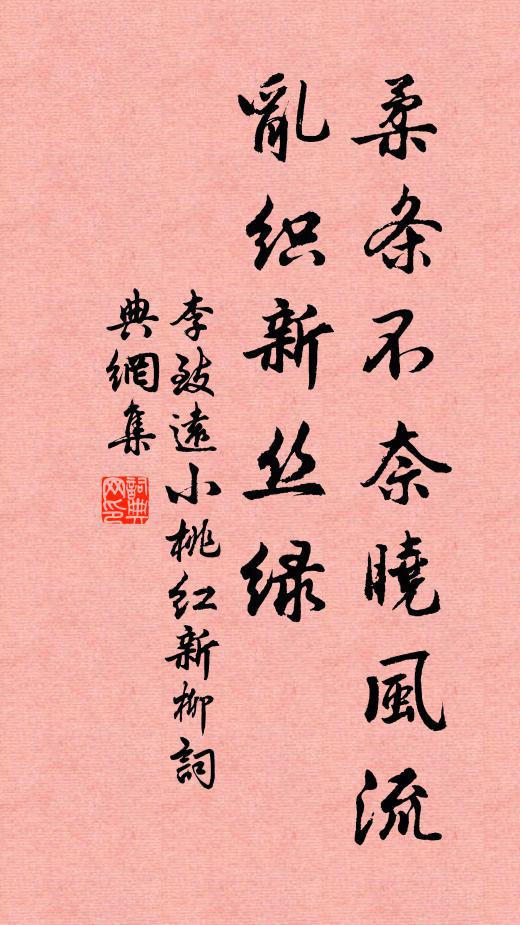 柔条不奈曉風流
亂织新丝绿
李致遠小桃红新柳詞
典網集
詞典网印